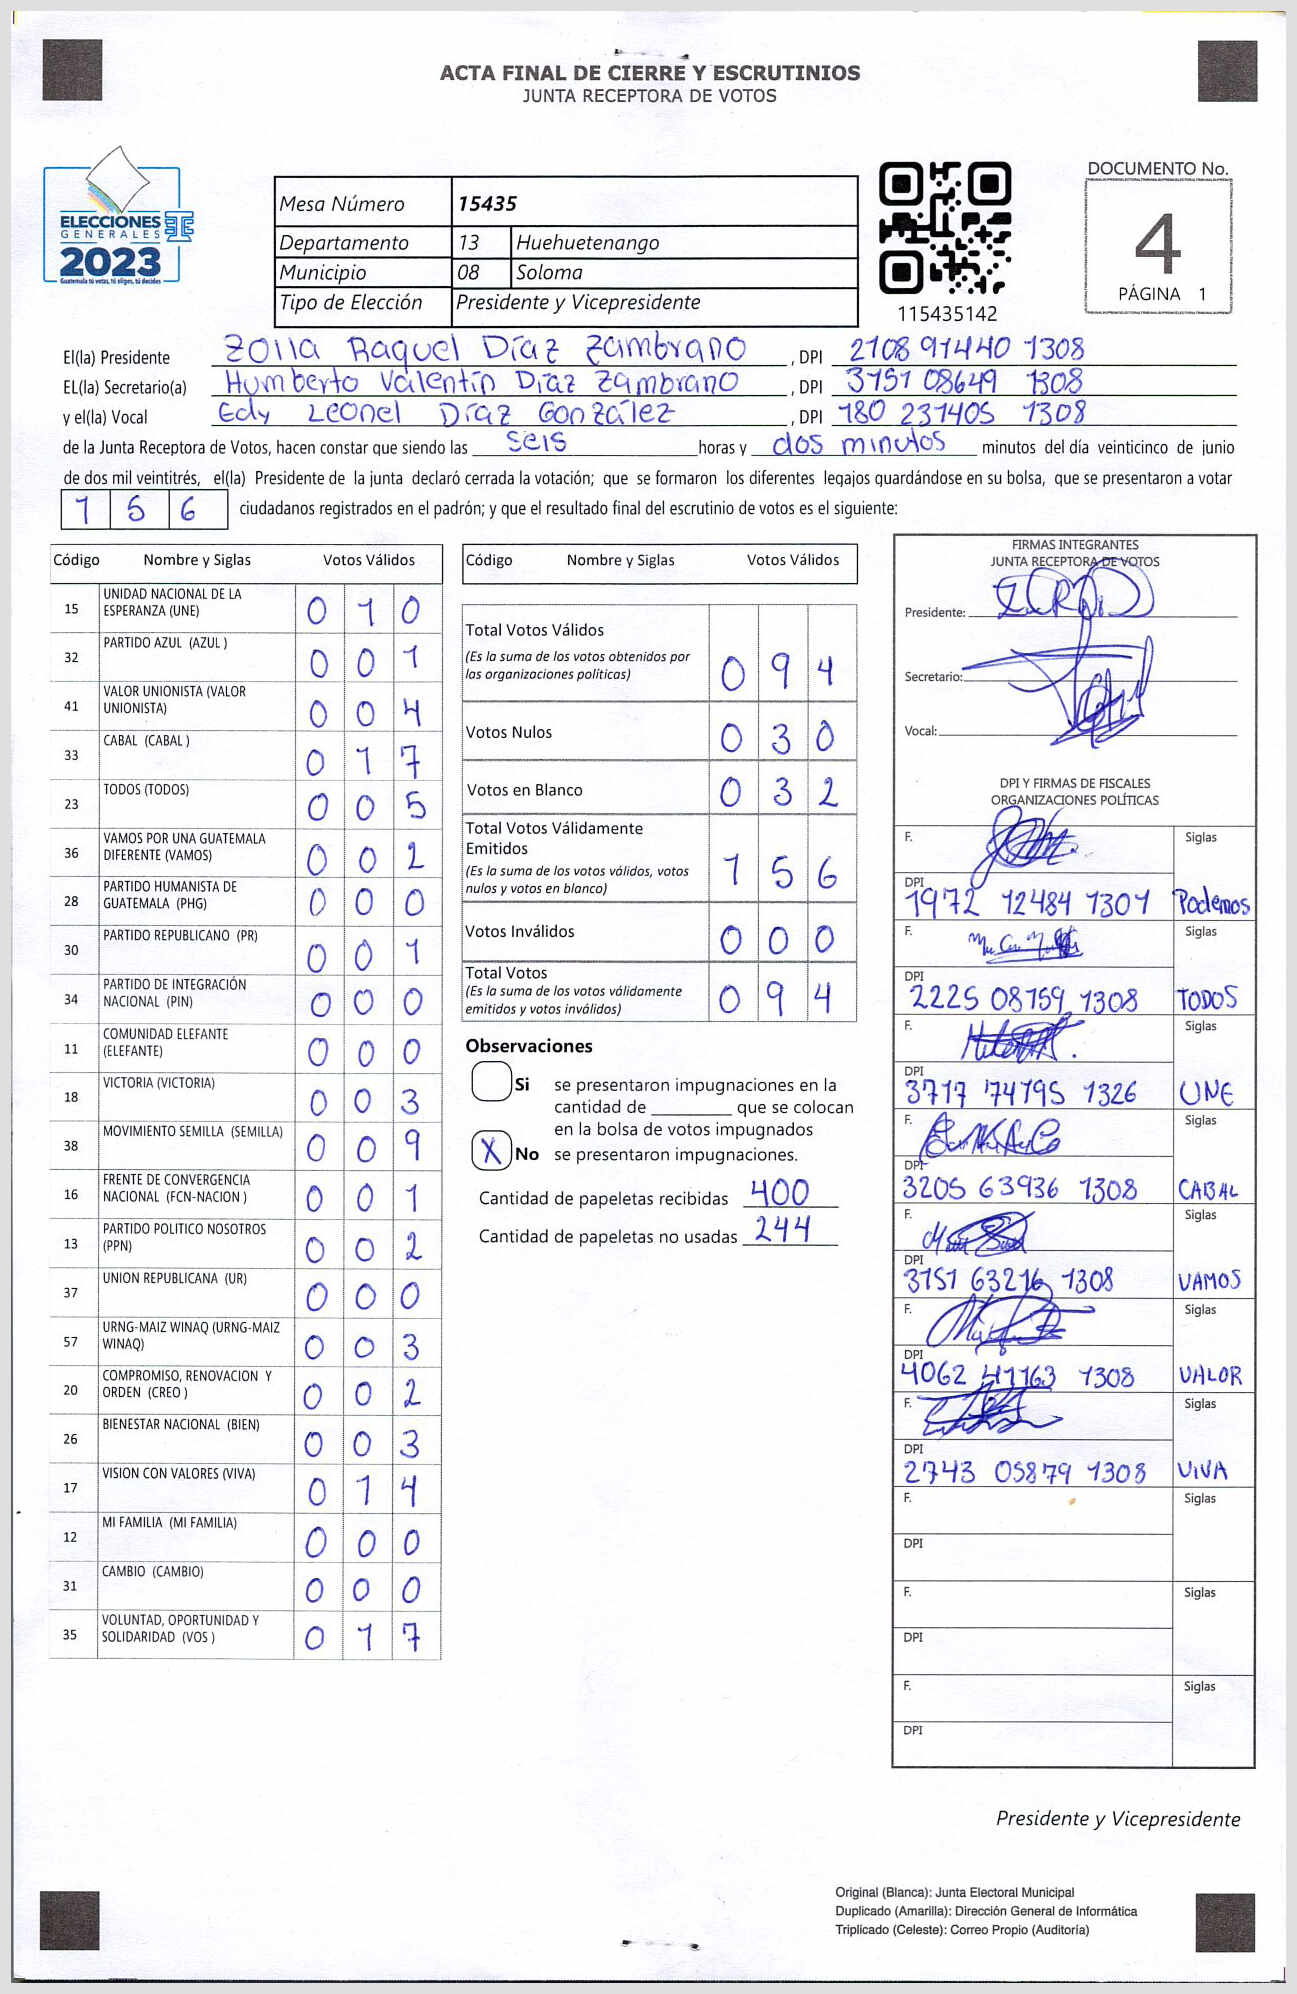 ACTA FINAL DE CIERRE Y ESCRUTINIOS
JUNTA RECEPTORA DE VOTOS
ELECCIONES
GENERALES
2023
Guatemala tú votas, tú eliges, tú decides
Mesa Número 15435
Departamento 13 Huehuetenango
Municipio 08 Soloma
Tipo de Elección Presidente y Vicepresidente
115435142
DOCUMENTO No.
4
PÁGINA 1
El(la) Presidente Zoila Raquel Díaz Zambrano , DPI 2108 91440 1308
EL(la) Secretario(a) Humberto Valentín Díaz Zambrano , DPI 3151 08649 1308
y el(la) Vocal Edy Leonel Díaz González , DPI 180 231405 1308
de la Junta Receptora de Votos, hacen constar que siendo las seis horas y dos minutos minutos del día veinticinco de junio
de dos mil veintitrés, el(la) Presidente de la junta declaró cerrada la votación; que se formaron los diferentes legajos guardándose en su bolsa, que se presentaron a votar
1 5 6 ciudadanos registrados en el padrón; y que el resultado final del escrutinio de votos es el siguiente:
Código Nombre y Siglas Votos Válidos
15 UNIDAD NACIONAL DE LA ESPERANZA (UNE) 0 1 0
32 PARTIDO AZUL (AZUL ) 0 0 1
41 VALOR UNIONISTA (VALOR UNIONISTA) 0 0 4
33 CABAL (CABAL ) 0 1 7
23 TODOS (TODOS) 0 0 5
36 VAMOS POR UNA GUATEMALA DIFERENTE (VAMOS) 0 0 2
28 PARTIDO HUMANISTA DE GUATEMALA (PHG) 0 0 0
30 PARTIDO REPUBLICANO (PR) 0 0 1
34 PARTIDO DE INTEGRACIÓN NACIONAL (PIN) 0 0 0
11 COMUNIDAD ELEFANTE (ELEFANTE) 0 0 0
18 VICTORIA (VICTORIA) 0 0 3
38 MOVIMIENTO SEMILLA (SEMILLA) 0 0 9
16 FRENTE DE CONVERGENCIA NACIONAL (FCN-NACION ) 0 0 1
13 PARTIDO POLITICO NOSOTROS (PPN) 0 0 2
37 UNION REPUBLICANA (UR) 0 0 0
57 URNG-MAIZ WINAQ (URNG-MAIZ WINAQ) 0 0 3
20 COMPROMISO, RENOVACION Y ORDEN (CREO ) 0 0 2
26 BIENESTAR NACIONAL (BIEN) 0 0 3
17 VISION CON VALORES (VIVA) 0 1 4
12 MI FAMILIA (MI FAMILIA) 0 0 0
31 CAMBIO (CAMBIO) 0 0 0
35 VOLUNTAD, OPORTUNIDAD Y SOLIDARIDAD (VOS ) 0 1 7
Código Nombre y Siglas Votos Válidos
Total Votos Válidos
(Es la suma de los votos obtenidos por
las organizaciones políticas) 0 9 4
Votos Nulos 0 3 0
Votos en Blanco 0 3 2
Total Votos Válidamente
Emitidos
(Es la suma de los votos válidos, votos
nulos y votos en blanco) 1 5 6
Votos Inválidos 0 0 0
Total Votos
(Es la suma de los votos válidamente
emitidos y votos inválidos) 0 9 4
Observaciones
Si se presentaron impugnaciones en la
cantidad de ________ que se colocan
en la bolsa de votos impugnados
X No se presentaron impugnaciones.
Cantidad de papeletas recibidas 400
Cantidad de papeletas no usadas 244
FIRMAS INTEGRANTES
JUNTA RECEPTORA DE VOTOS
Presidente:
Secretario:
Vocal:
DPI Y FIRMAS DE FISCALES
ORGANIZACIONES POLÍTICAS
F. Siglas
DPI
1972 12484 1301 Podemos
F. Siglas
DPI
2225 08159 1308 TODOS
F. Siglas
DPI
3717 74795 1326 UNE
F. Siglas
DPI
3205 63936 1308 CABAL
F. Siglas
DPI
3151 63216 1308 VAMOS
F. Siglas
DPI
4062 41163 1308 VALOR
F. Siglas
DPI
2743 05879 1308 VIVA
F. Siglas
DPI
F. Siglas
DPI
F. Siglas
DPI
Presidente y Vicepresidente
Original (Blanca): Junta Electoral Municipal
Duplicado (Amarilla): Dirección General de Informática
Triplicado (Celeste): Correo Propio (Auditoría)